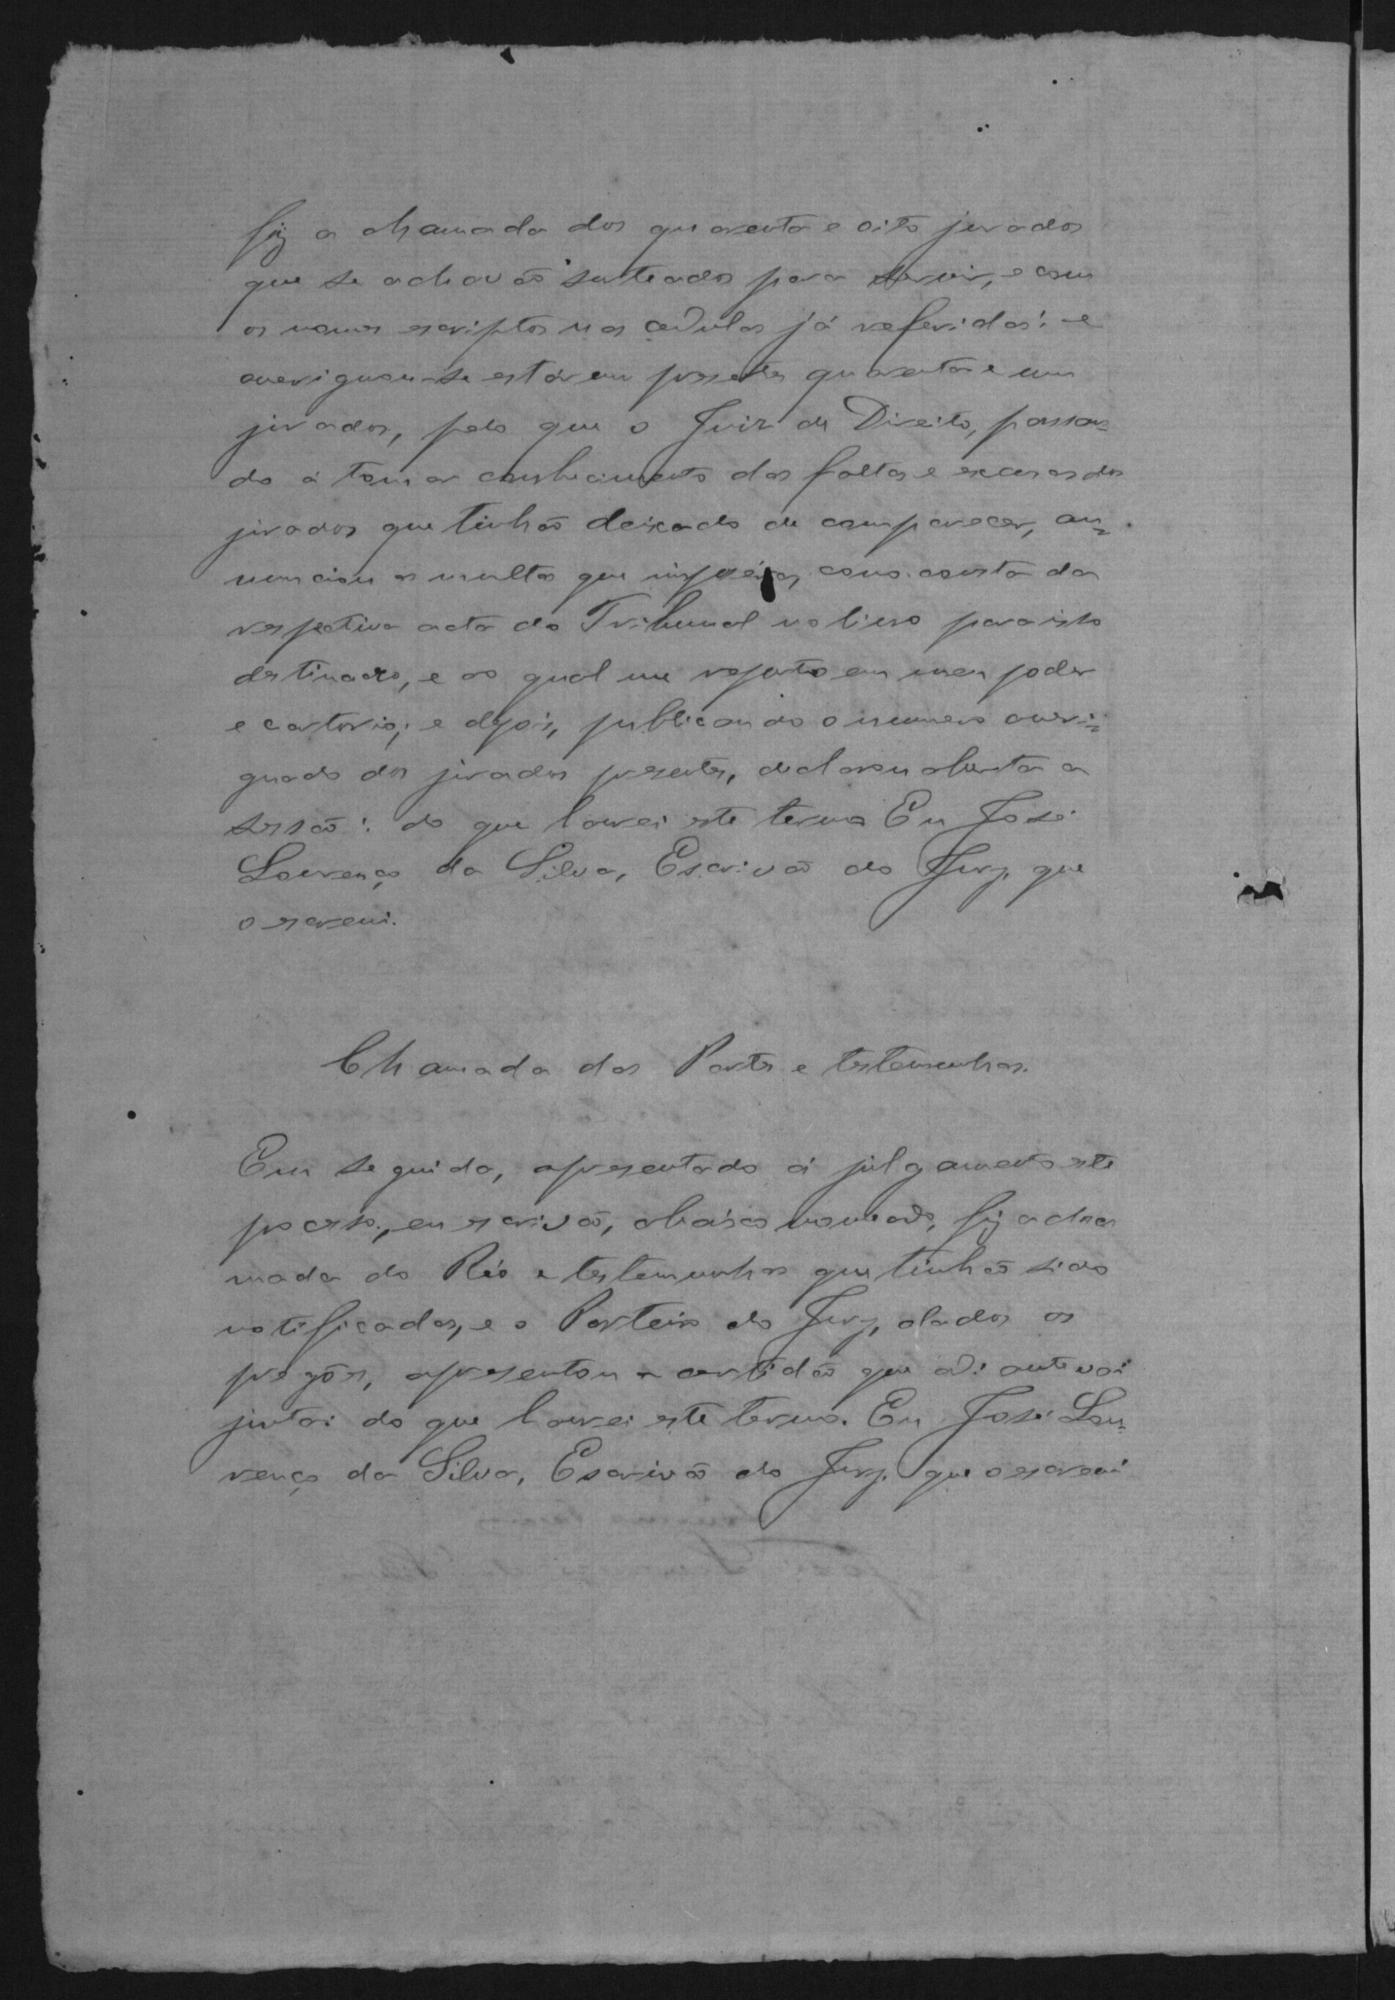 fiz a chamada dos quarenta e oito jurados
que se achavão sorteados para servir, e com
os nomes escriptos nas cedulas já referidas: e
averiguou-se estarem presentes quarenta e um
jurados, pelo que o Juiz de Direito, passan-
do á tomar conhecimento das faltas e excusas dos
jurados que tinhão deixado de comparecer, an-
nunciou as multas que impoz, como consta da
respectiva acta do Tribunal no livro para isto
destinado, e ao qual me reporto em meu poder
e cartorio; e depois, publicando o numero averi-
guado dos jurados presentes, declarou aberta a
sessão: do que lavrei este termo Eu José
Lourenço da Silva, Escrivão do Jury, que
o escrevi.
Chamada das Partes e testemunhas.
Em seguida, apresentado á julgamento este
processo, eu escrivão, abaixo nomeado, fiz a cha
mada do Réo e testemunhas que tinhão sido
notificadas, e o Porteiro do Jury, dados os
pregões, apresentou a certidão que adiante vai
junta: do que lavrei este termo. Eu José Lou-
renço da Silva, Escrivão do Jury, que o escrevi